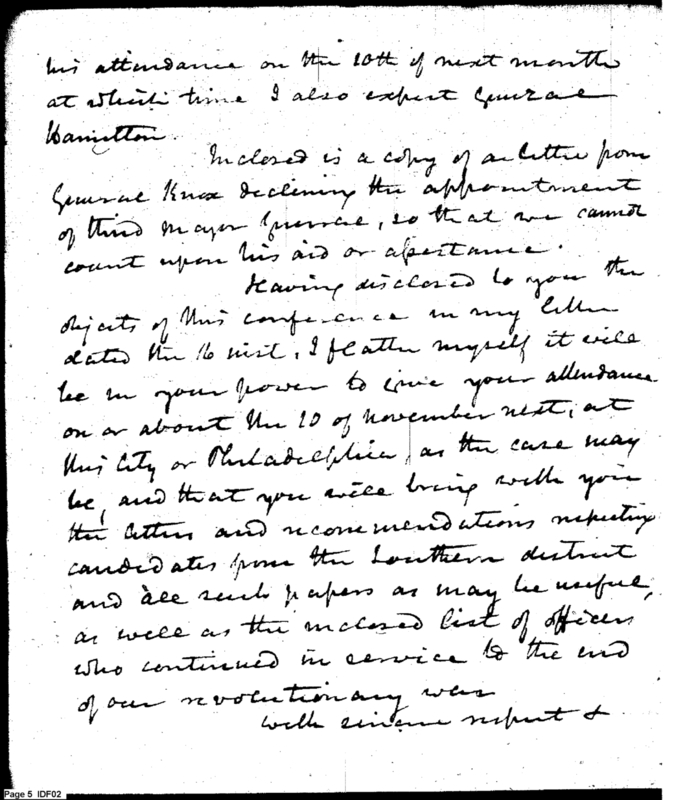 his attendance on the 10th of next month
at which time I also expect General
Hamilton.
Inclosed is a copy of a letter from
General Knox declining the appointment
of third Major General, so that we cannot
count upon his aid or assistance.
Having disclosed to you the
objects of this conference in my letter
dated the 16 inst, I flatter myself it will
be in your power to give your attendance
on or about the 10 of November next, at
this City or Philadelphia, as the case may
be, and that you will bring with you
the letters and recommendations respecting
candidates from the Southern district
and all such papers as may be useful,
as well as the inclosed list of officers
who continued in service to the end
of our revolutionary war
with sincere respect &
Page 5 IDF02